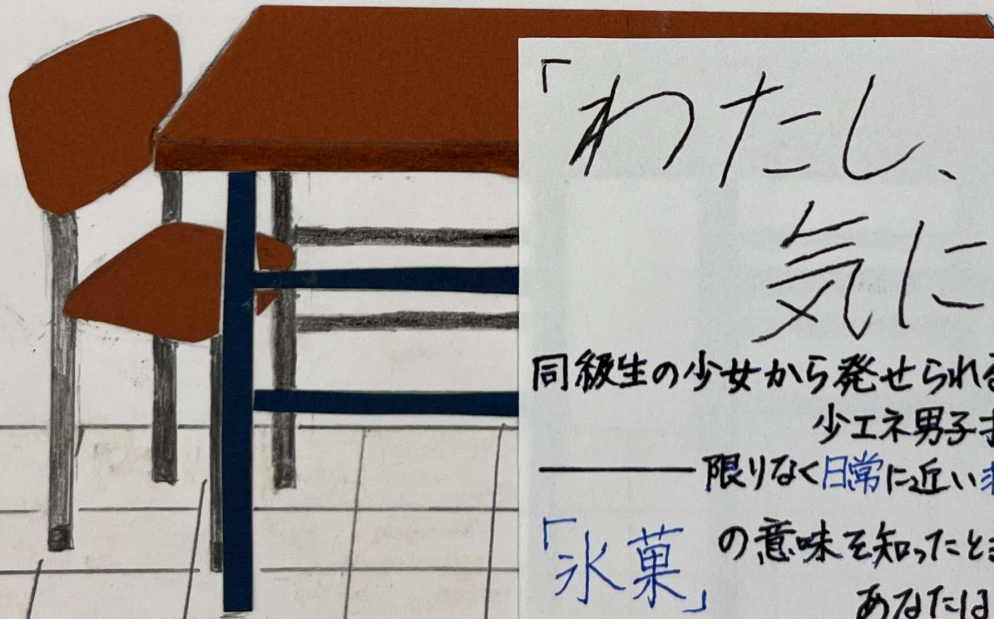 「わたし、
気に
同級生の少女から発せられる
少エネ男子
限りなく日常に近い
「氷菓」の意味を知ったとき
あなたは